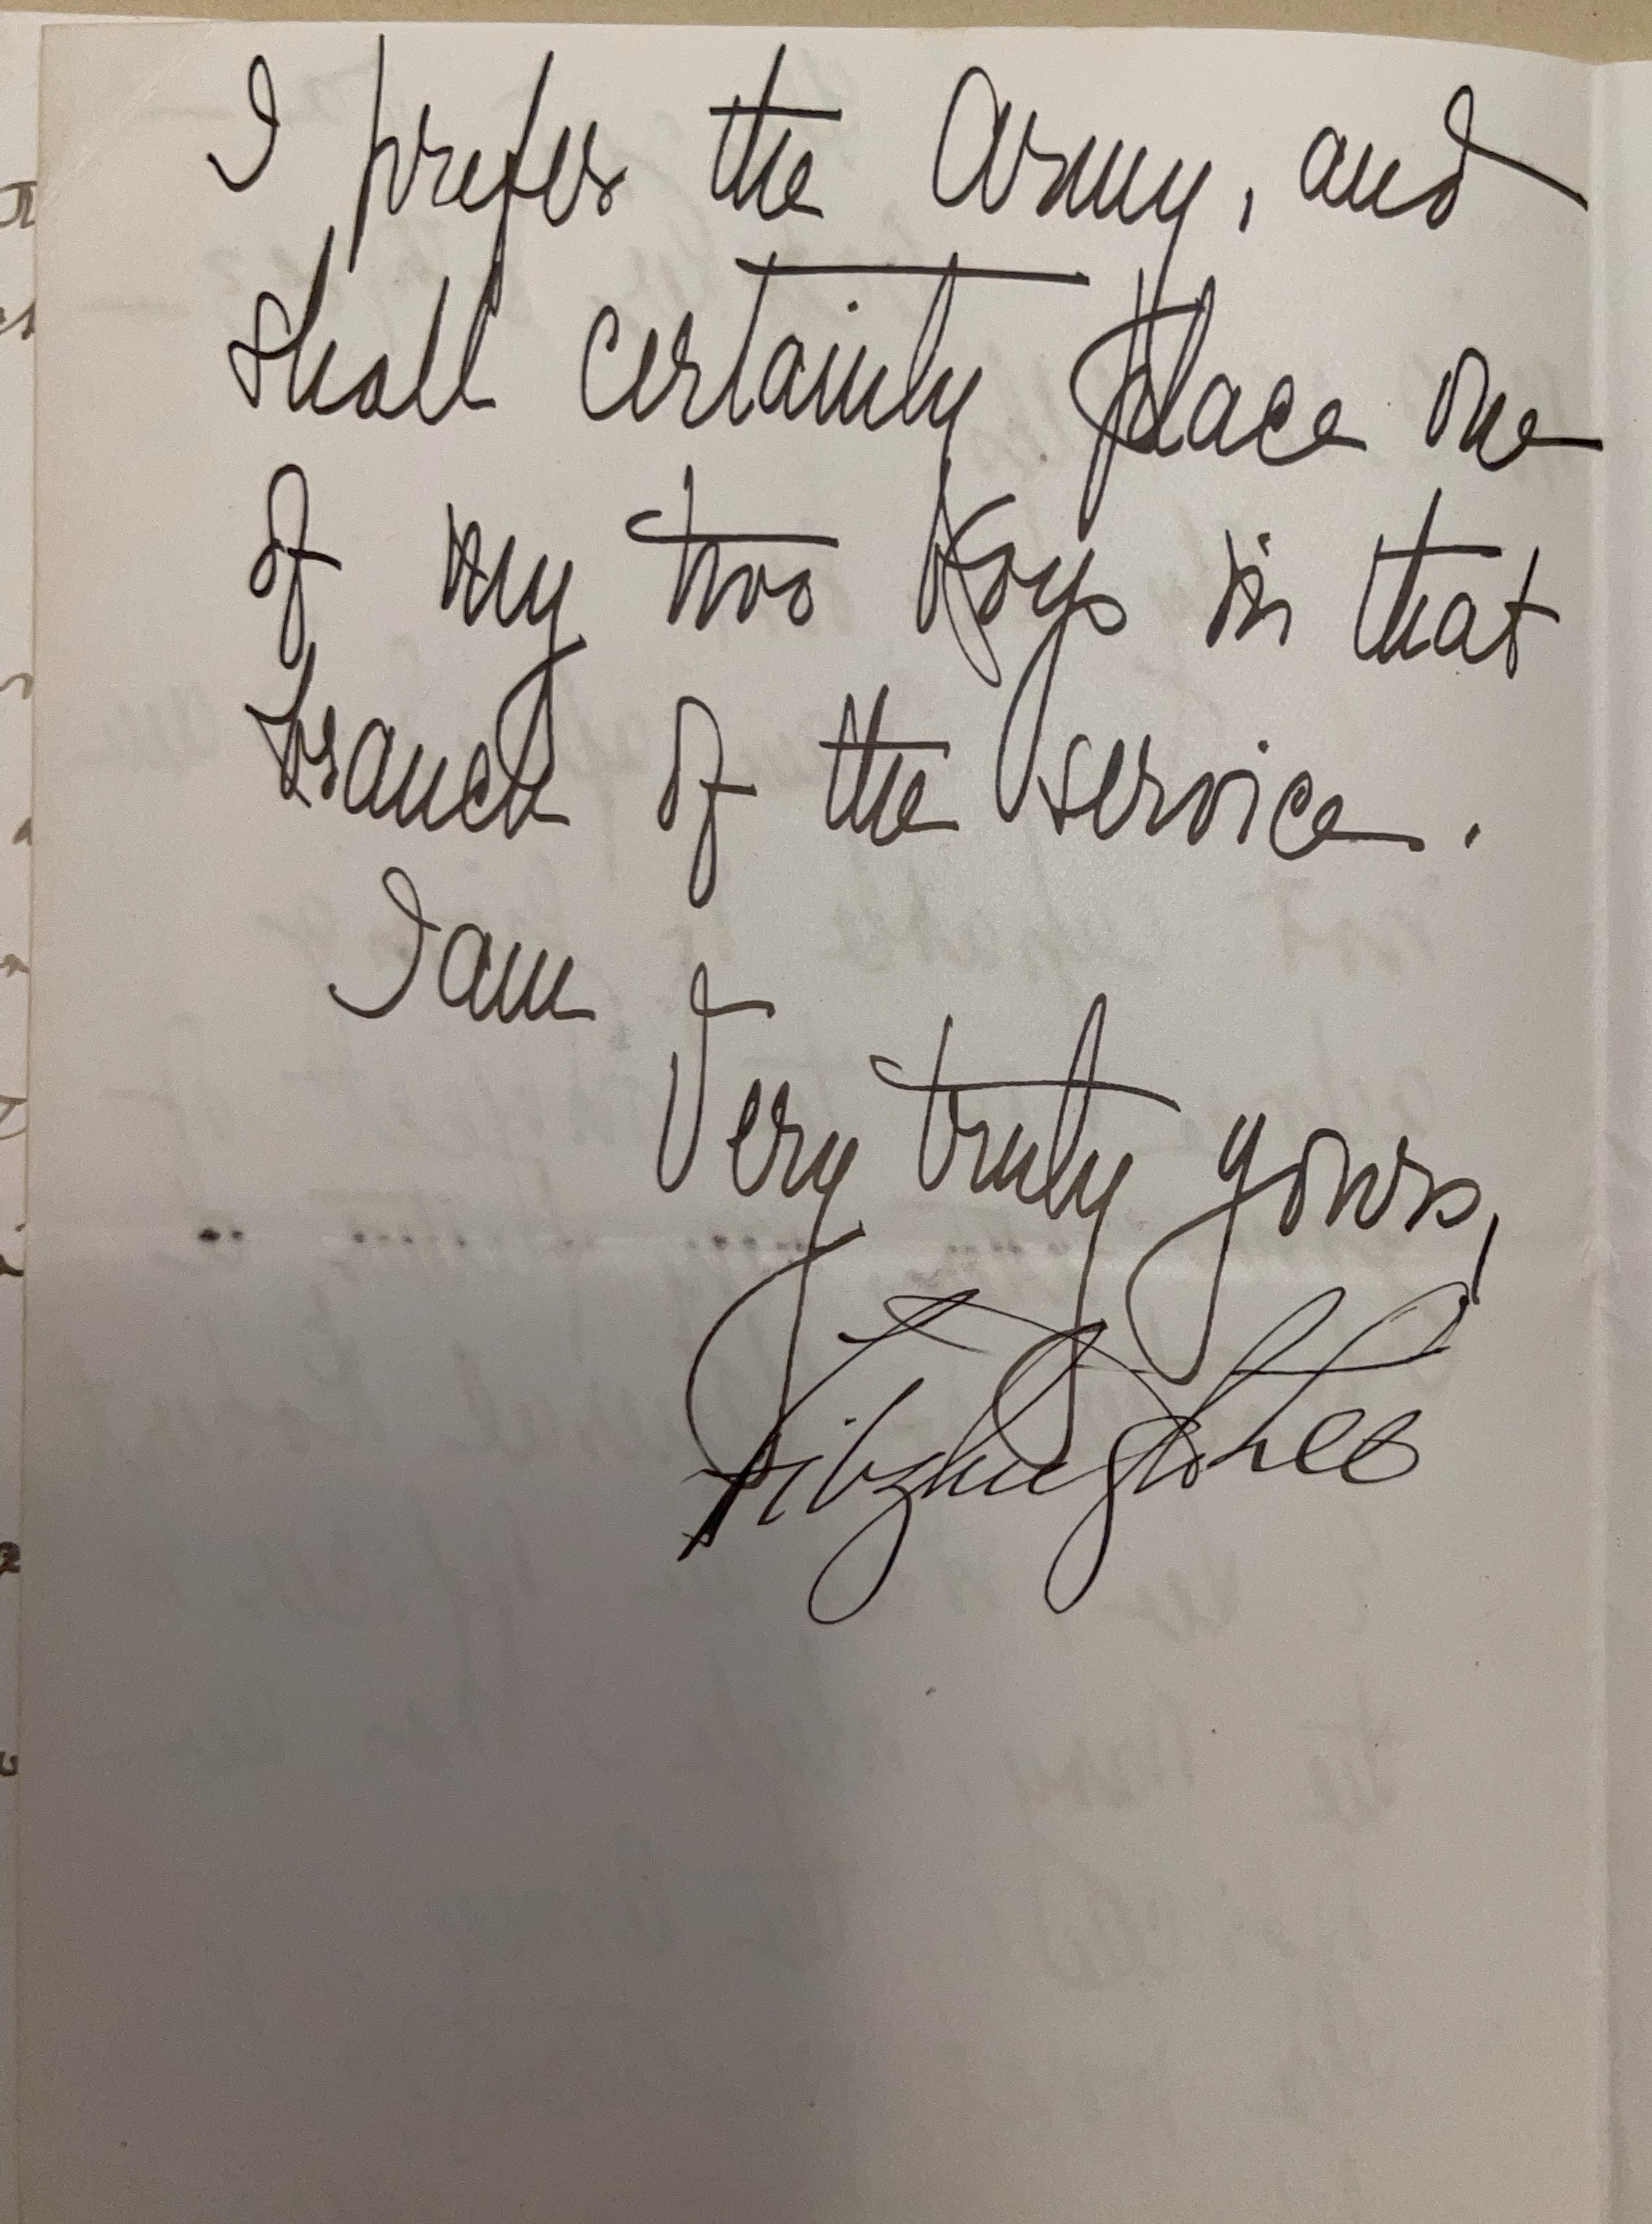 I prefer the Army, and
shall certainly place one
of my two boys in that
branch of the service.
I am
Very truly yours,
Fitzhugh Lee